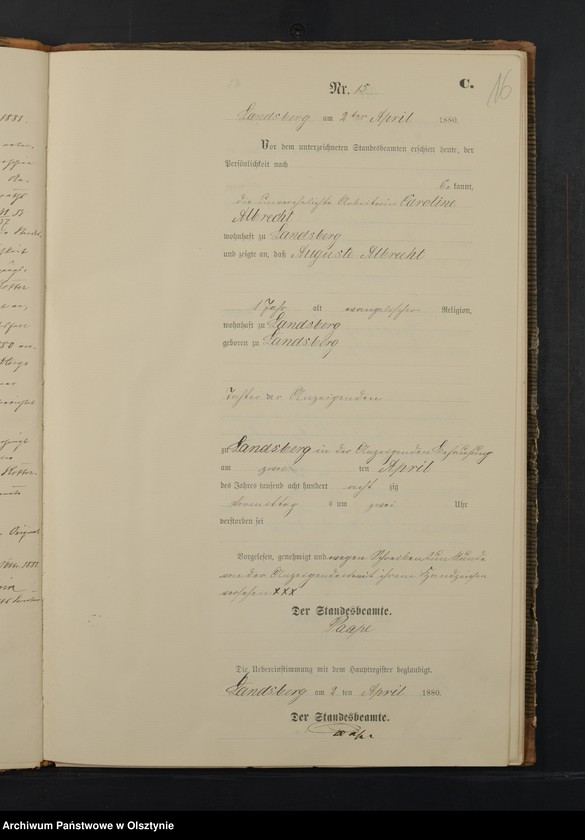 16
C.
Nr. 15
Landsberg am 2ter April 1880.
Vor dem unterzeichneten Standesbeamten erschien heute, der
Persönlichkeit nach
be kannt,
die unverehelichte Arbeiterin Caroline
Albrecht
wohnhaft zu Landsberg
und zeigte an, daß Auguste Albrecht
1 Jahr alt evangelischer Religion,
wohnhaft zu Landsberg
geboren zu Landsberg
Tochter der Anzeigenden
zu Landsberg in der Anzeigenden Behausung
am zwei ten April
des Jahres tausend acht hundert acht zig
Vormittag s um zwei Uhr
verstorben sei
Vorgelesen, genehmigt und wegen Schreibensunkunde
von der Anzeigenden mit ihrem Handzeichen
versehen XXX
Der Standesbeamte.
Paape
Die Uebereinstimmung mit dem Hauptregister beglaubigt.
Landsberg am 2. ten April 1880.
Der Standesbeamte.
Paape
Archiwum Państwowe w Olsztynie